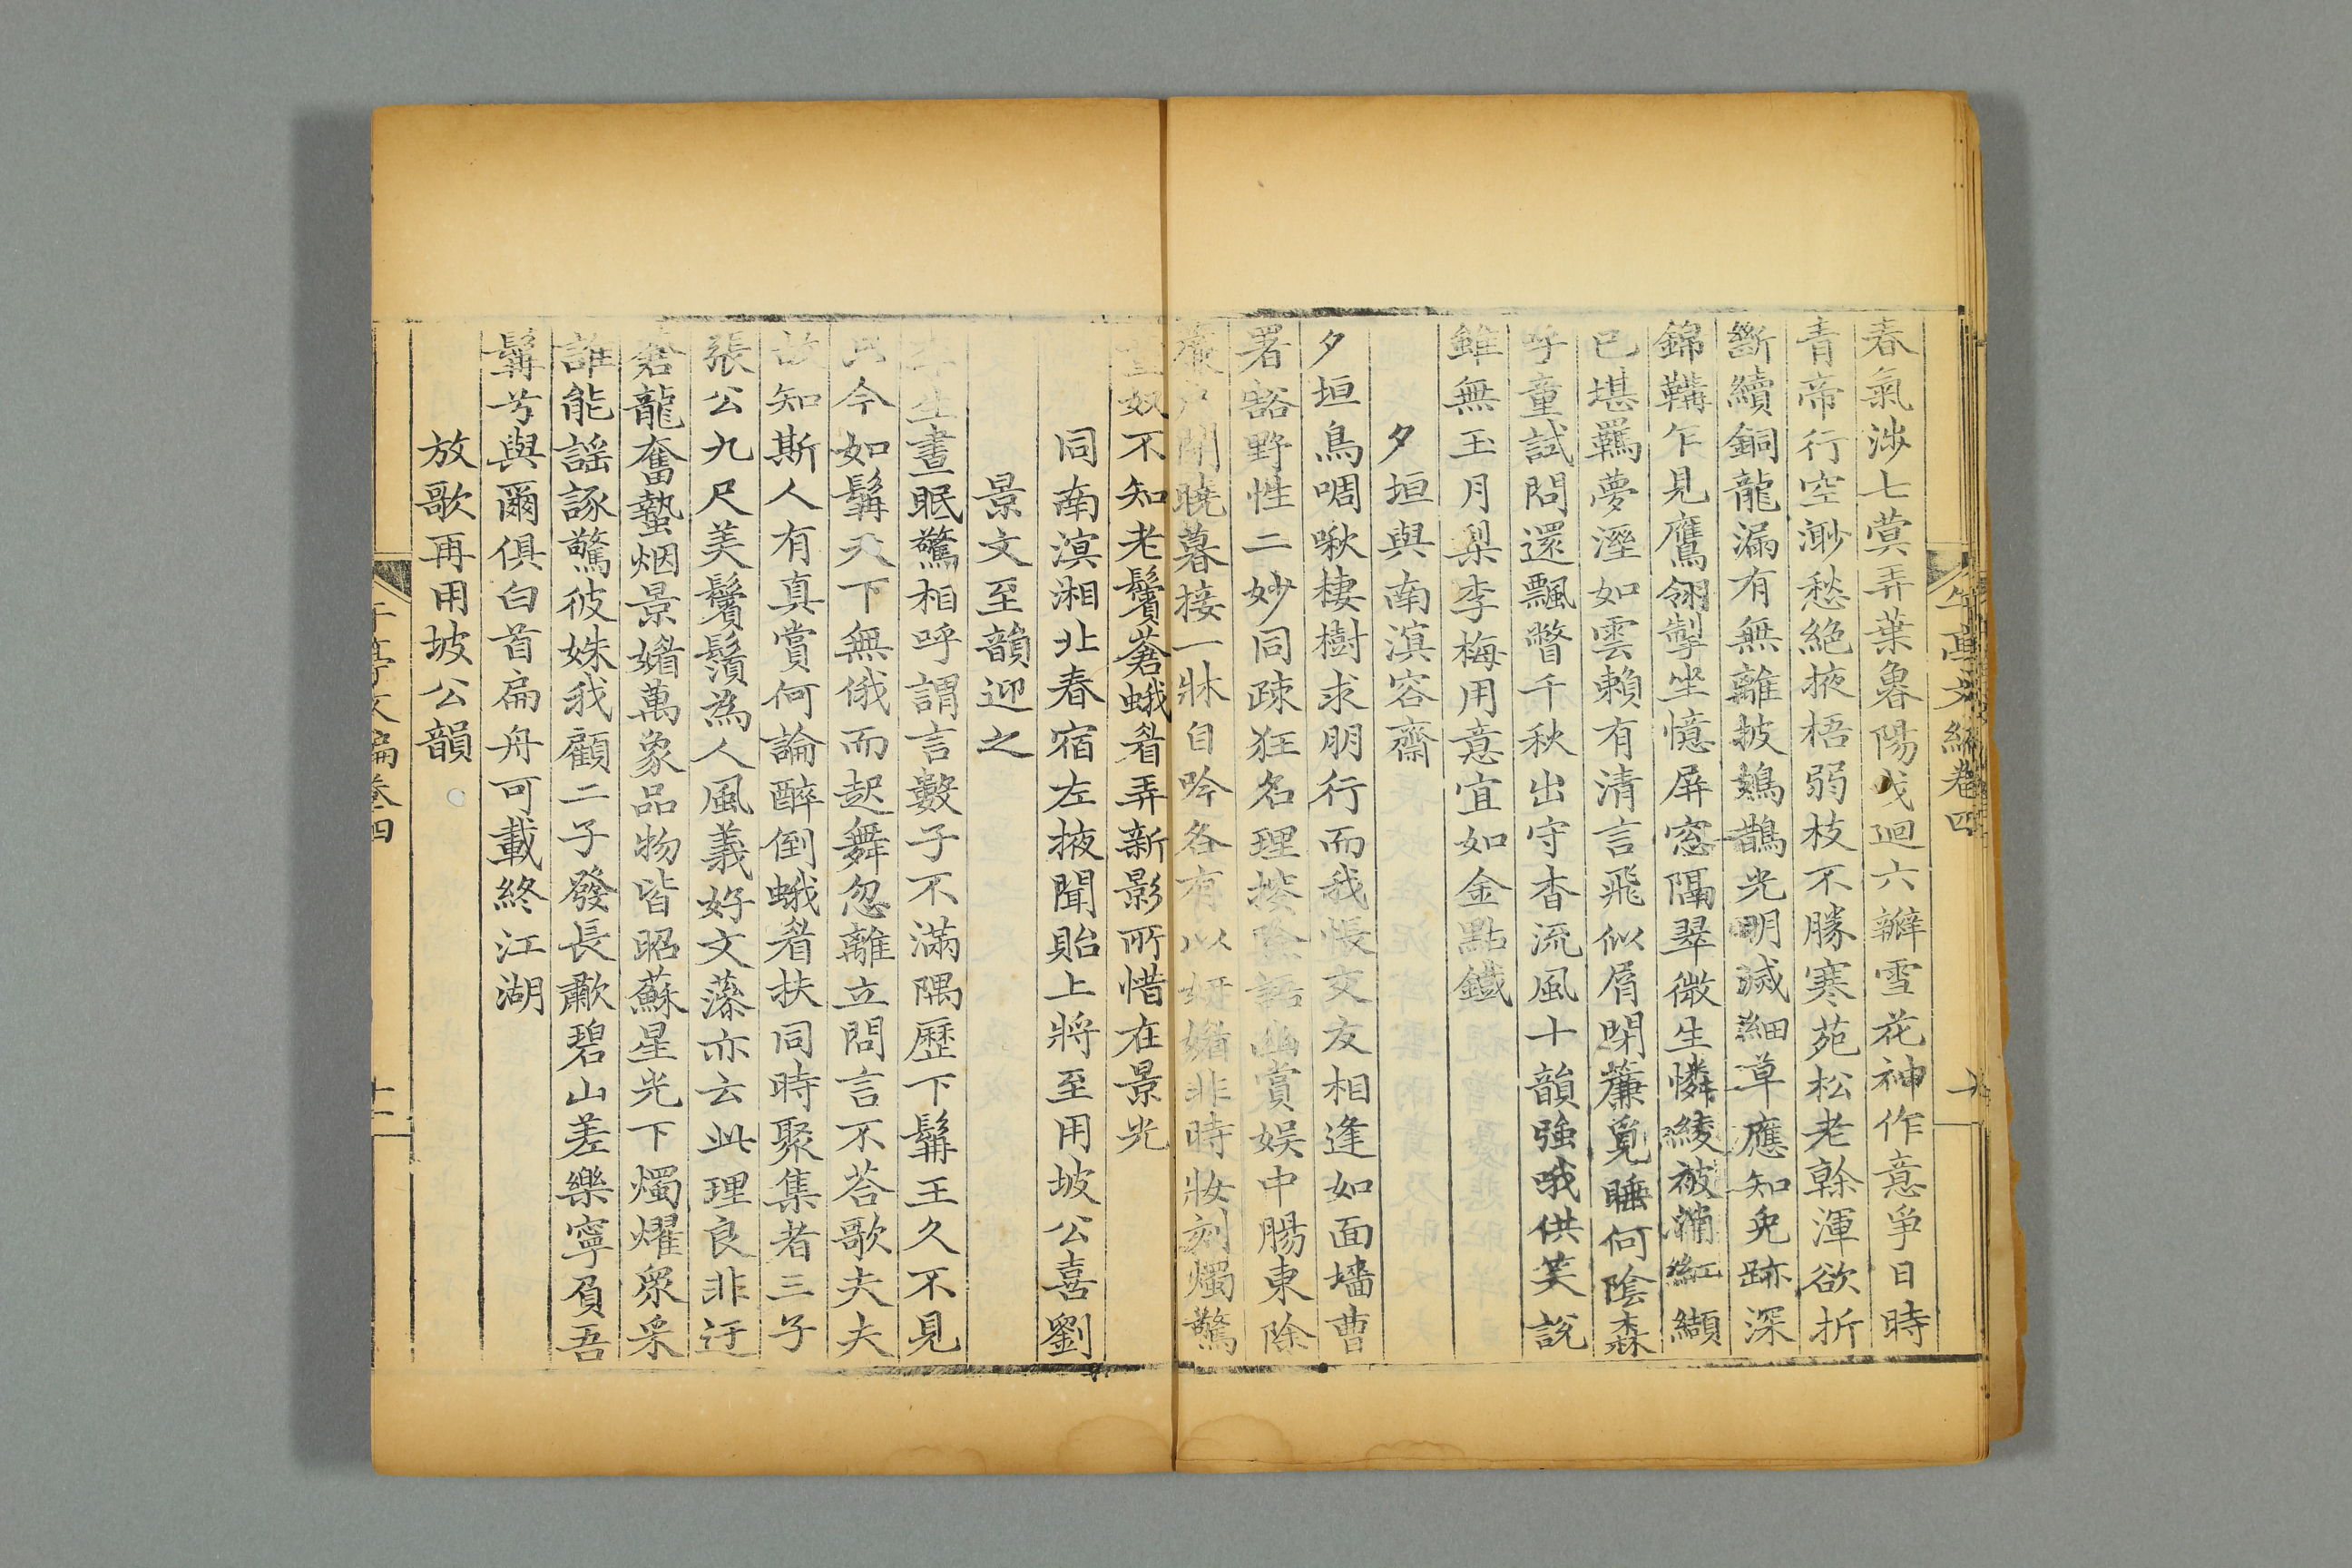 午亭文編卷四
春氣涉七蓂弄葉魯陽戈迴六瓣雪花神作意爭日時
青帝行空渺愁絕掖梧弱枝不勝寒苑松老榦渾欲折
斷續銅龍漏有無離披鷞鵲光明滅細草應知兔跡深
錦鞲乍見鷹翎掣坐憶屏窓隔翠微生憐綾被消紅纈
已堪羈夢溼如雲賴有清言飛似屑閉簾覓睡何陰森
呼童試問還飄瞥千秋出守杳流風十韻強哦供笑說
雖無玉月梨李梅用意宜如金點鐵
夕垣與南溟容齋
夕垣鳥啁啾棲樹求朋行而我悵交友相逢如面墻曹
署豁野性二妙同疎狂名理揆陰語幽賞娛中腸東除
嚴戶開曉暮接一牀自吟各有以妍媸非時妝刻燭驚
奴不知老鬢蒼蛾眉弄新影所惜在景光
同南溟湘北春宿左掖聞貽上將至用坡公喜劉
景文至韻迎之
生晝眠驚相呼謂言數子不滿隅歷下髯王久不見
只今如髯天下無俄而起舞忽離立問言不荅歌夫夫
故知斯人有真賞何論醉倒蛾眉扶同時聚集者三子
張公九尺美鬢鬚為人風義好文藻亦云此理良非迂
蒼龍奮蟄烟景媚萬象品物皆昭蘇星光下燭燿衆采
誰能謡諑驚彼姝我顧二子發長歗碧山差樂寧負吾
髯兮與爾俱白首扁舟可載終江湖
放歌再用坡公韻
午亭文編卷四
十二